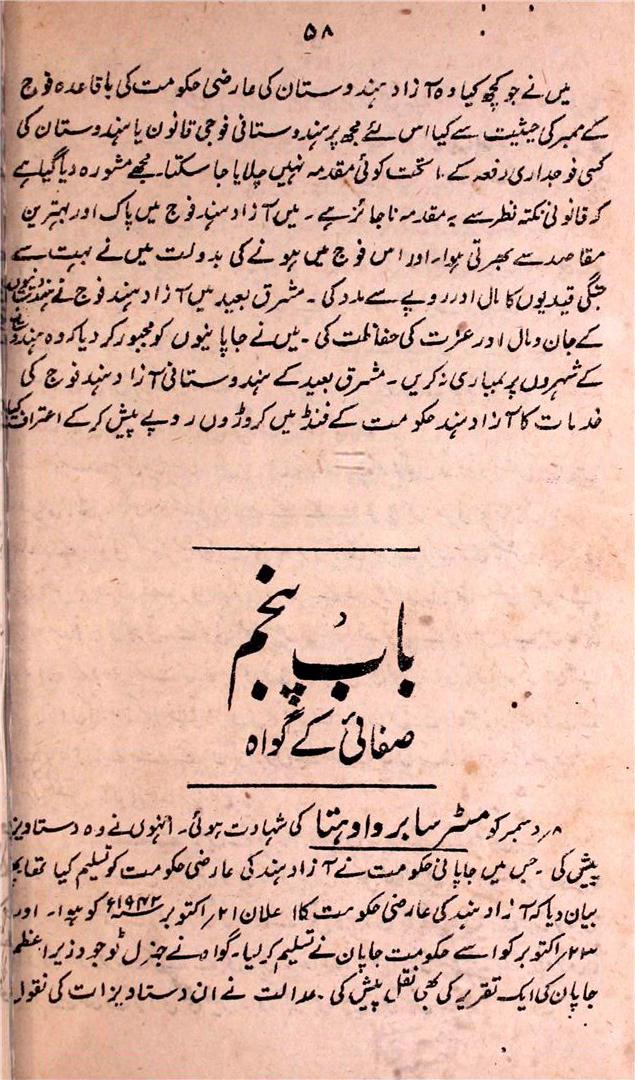 ۵۸
میں نے جو کچھ کیا وہ آزاد ہندوستان کی عارضی حکومت کی باقاعدہ فوج
کے ممبر کی حیثیت سے کیا اس لئے مجھ پر ہندوستانی فوجی قانون یا ہندوستان کی
کسی فوجداری دفعہ کے ماتحت کوئی مقدمہ نہیں چلایا جا سکتا۔ مجھے مشورہ دیا گیا ہے
کہ قانونی نکتہ نظر سے یہ مقدمہ ناجائز ہے۔ میں آزاد ہند فوج میں پاک اور بہترین
مقاصد سے بھرتی ہوا۔ اور اس فوج میں ہونے کی بدولت میں نے بہت سے
جنگی قیدیوں کا مال اور روپے سے مدد کی۔ مشرق بعید میں آزاد ہند فوج نے
کے جان و مال اور عزت کی حفاظت کی۔ میں نے جاپانیوں کو مجبور کر دیا کہ وہ
کے شہروں پر بمباری نہ کریں۔ مشرق بعید کے ہندوستانی آزاد ہند فوج کی
خدمات کا آزاد ہند حکومت کے فنڈ میں کروڑوں روپے پیش کر کے اعتراف کیا
باب پنجم
صفائی کے گواہ
۸؍ دسمبر کو مسٹر سابرو اوہتا کی شہادت ہوئی۔ انہوں نے وہ دستاویز
پیش کی۔ جس میں جاپانی حکومت نے آزاد ہند کی عارضی حکومت کو تسلیم کیا تھا
بیان دیا کہ آزاد ہند کی عارضی حکومت کا اعلان ۲۱؍ اکتوبر ۱۹۴۳ء کو ہوا۔ اور
۲۳؍ اکتوبر کو اسے حکومت جاپان نے تسلیم کر لیا۔ گواہ نے جنرل ٹوجو وزیر اعظم
جاپان کی ایک تقریر کی بھی نقل پیش کی۔ عدالت نے ان دستاویزات کی نقول